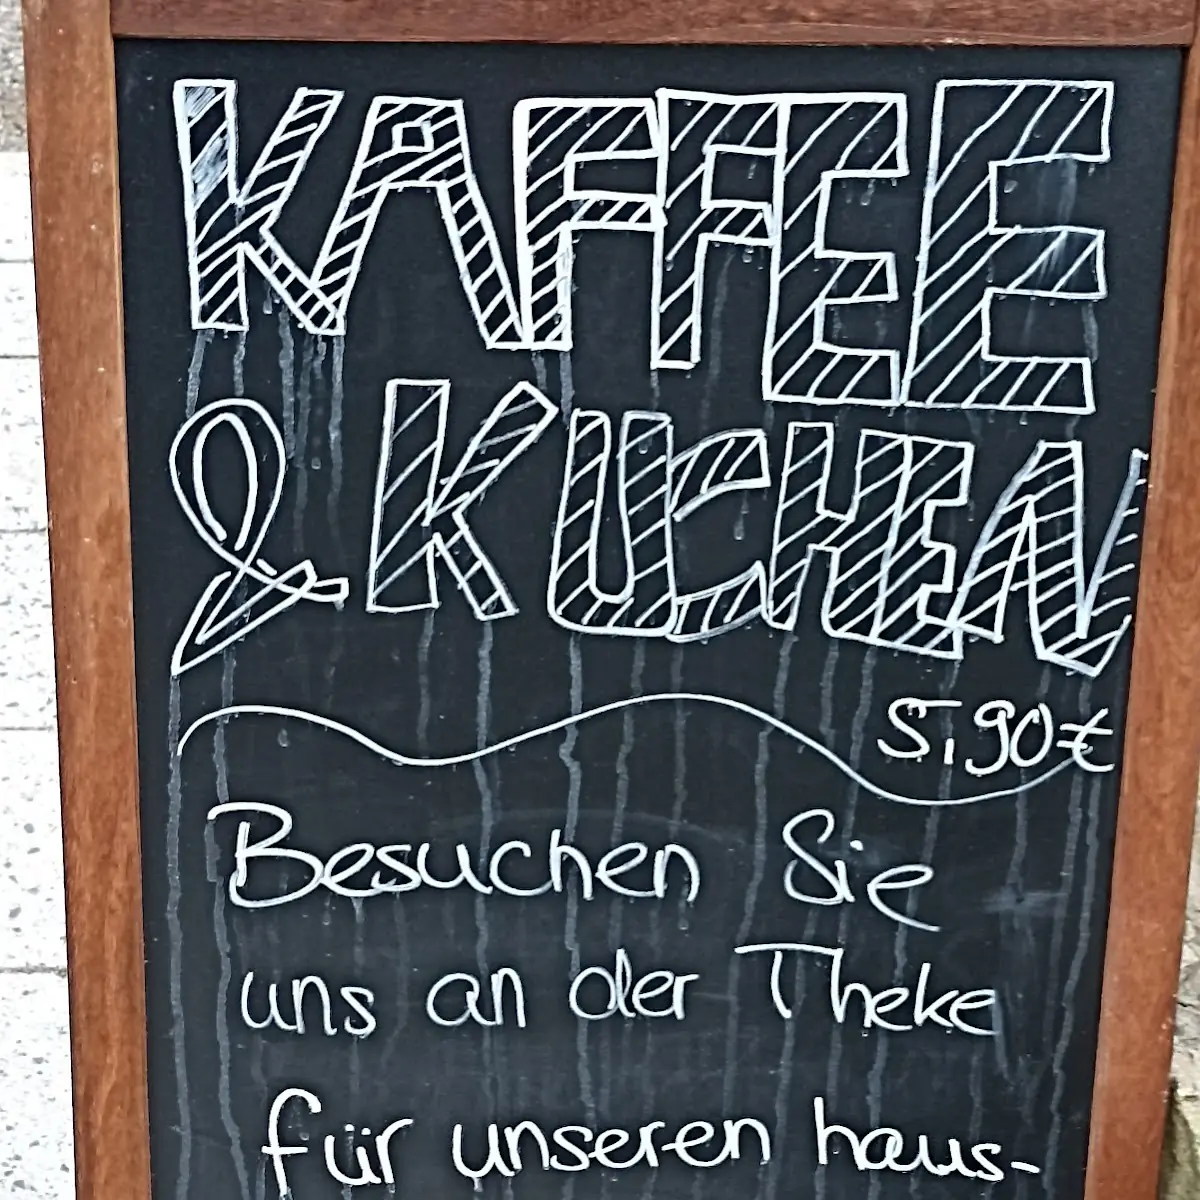 KAFFEE
& KUCHEN
5,90€
Besuchen Sie
uns an der Theke
für unseren haus-